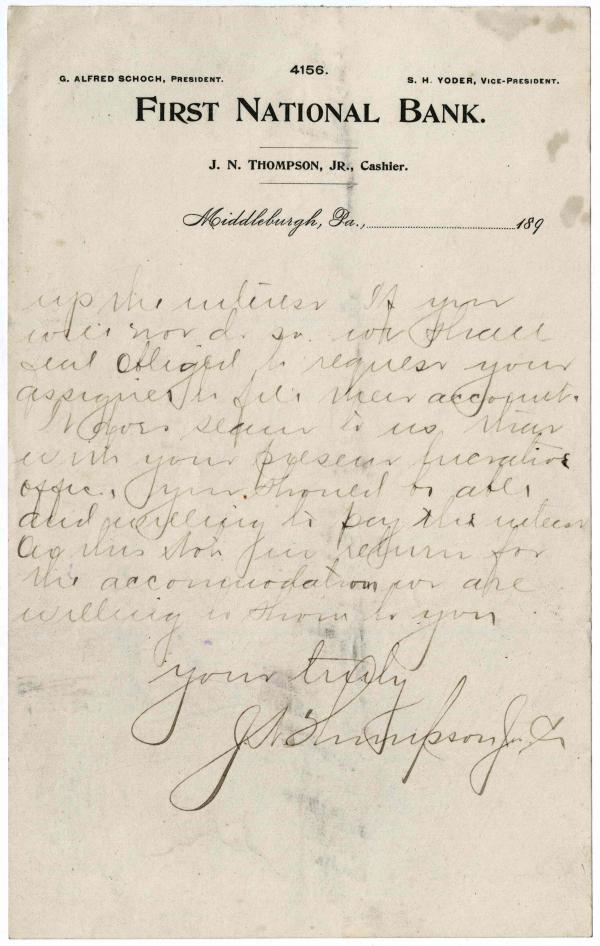 4156.
G. ALFRED SCHOCH, PRESIDENT.
S. H. YODER, VICE-PRESIDENT.
FIRST NATIONAL BANK.
J. N. THOMPSON, JR., Cashier.
Middleburgh, Pa., 189
up the interest If you
will not do so we shall
feel obliged to request your
assignee to file their account.
It does seem to us that
with your present lucrative
office, you should be able
and willing to pay the interest
on this note in return for
the accommodation we are
willing to show to you
yours truly
J N Thompson Jr